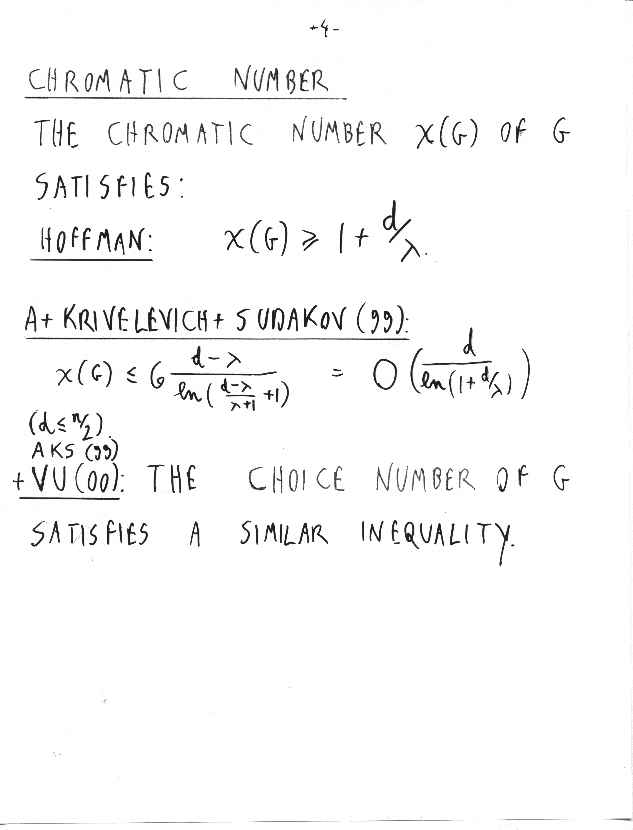 -4-
CHROMATIC NUMBER
THE CHROMATIC NUMBER χ(G) OF G
SATISFIES:
HOFFMAN: χ(G) ≥ 1 + d/λ.
A + KRIVELEVICH + SUDAKOV (99):
χ(G) ≤ 6 (d-λ)/(ln((d-λ)/(λ+1) + 1)) = O(d/(ln(1+d/λ)))
(d ≤ n/2)
AKS (99)
+ VU (00): THE CHOICE NUMBER OF G
SATISFIES A SIMILAR INEQUALITY.